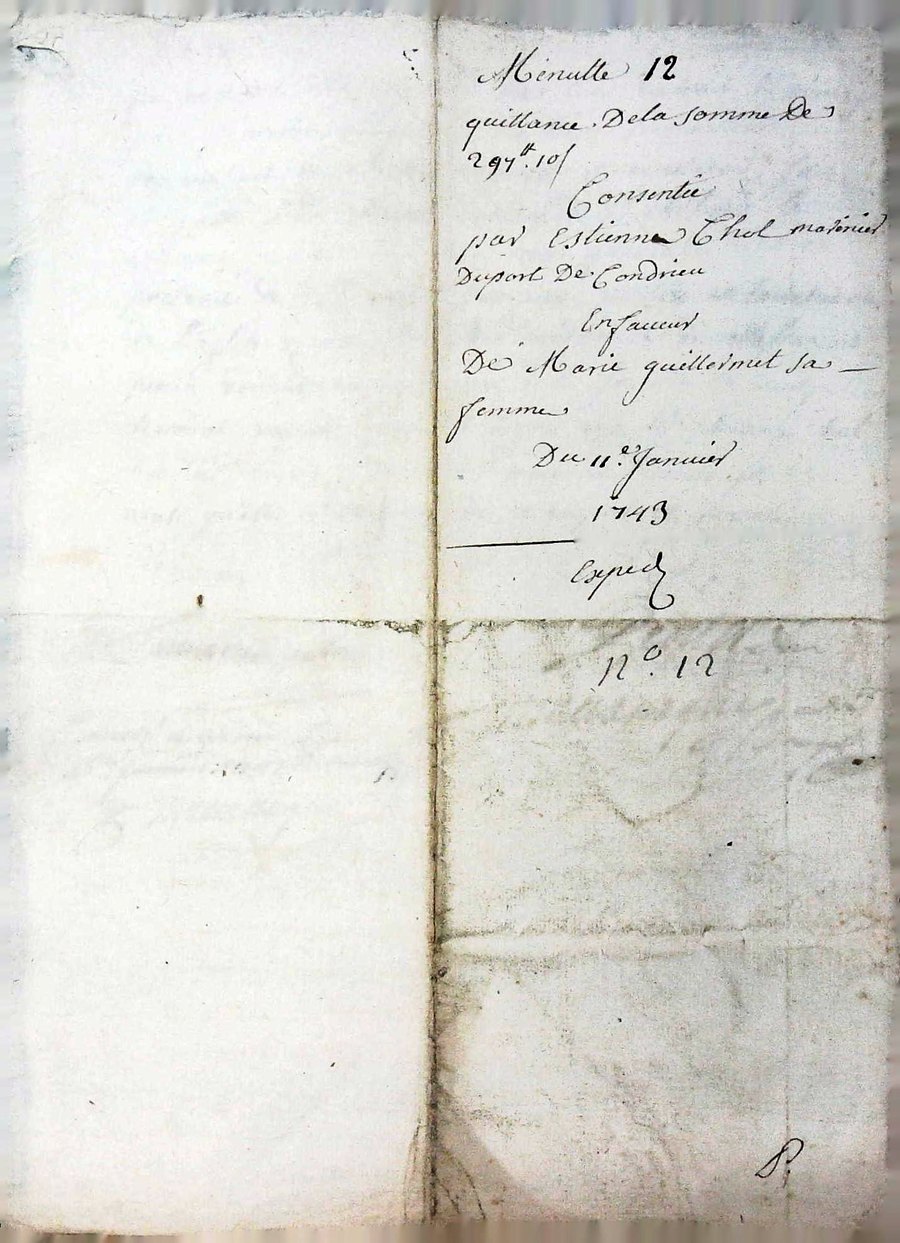 Menutte 12
quittance. Dela somme De
297tt. 10s
Consentie
par Estienne Thol marinier
Duport De Condrieu
En faueur
De Marie guillermet sa
femme
Du 11e. Januier
1743
Exped
No. 12